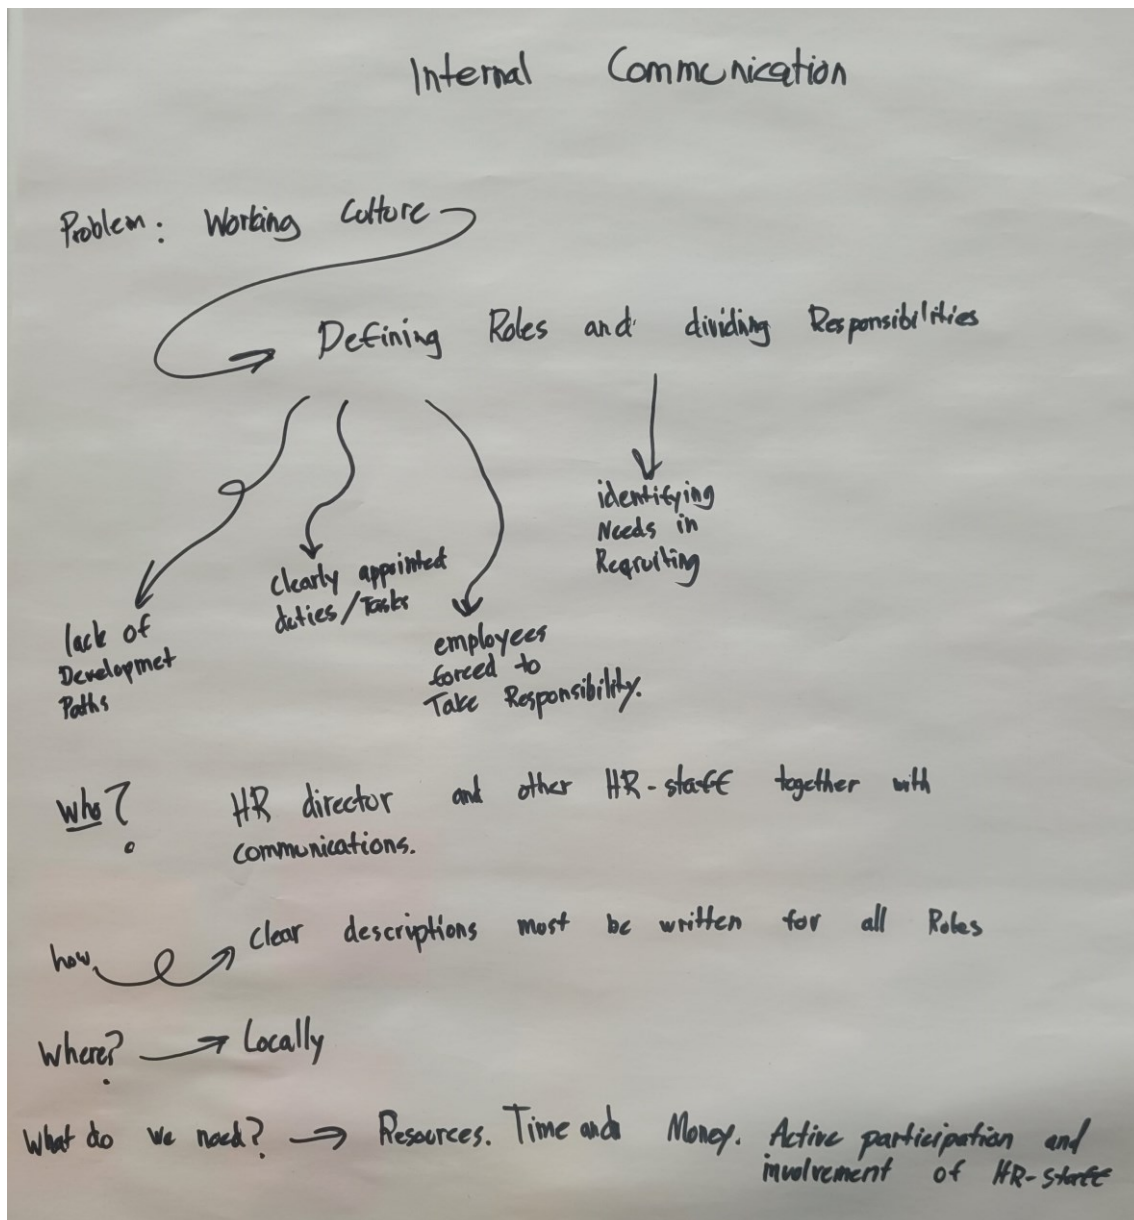 Internal Communication
Problem: Working Culture
Defining Roles and dividing Responsibilities
identifying
Needs in
Recruiting
clearly appointed
duties/Tasks
lack of
Developmet
Paths
employees
forced to
Take Responsibility.
Who? HR director and other HR-staff together with
communications.
how clear descriptions must be written for all Roles
Where? Locally
What do we need? Resources. Time and Money. Active participation and
involvement of HR-staff